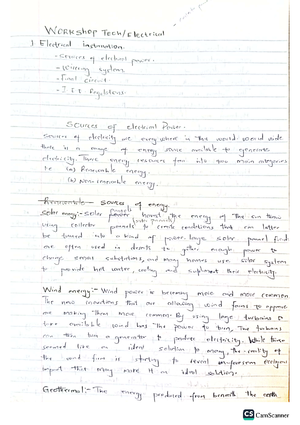 WORKSHOP Tech/Electrical
1 Electrical Installation.
- Sources of electrical power.
- Wiring systems
- Final circuit
- I.E.E Regulations.
Sources of electrical Power.
Sources of electricity are every where in the world. World wide
there is a range of energy available to generate
electricity. These energy resources into two main categories
i.e (a) Renewable energy.
(b) Non renewable energy.
Renewable Sources of energy
Solar energy:- Solar the energy of the sun
using collector pannels to create conditions that can
be turned into a kind of power. Large solar pannel
are often used in to gather enough power to
charge small substations, and many homes use solar system
to provide hot water, cooling and supplement their electricity.
Wind energy:- Wind power is becoming more and more common
The new inventions that are allowing wind farms to appear
are making them more common. By using large turbines to
take available wind has the power to turn, The turbines
can turn a generator to produce electricity. While this
seemed like an ideal solution to many, the reality of
the wind farms is starting to reveal
impact that may make it an ideal solution.
Geothermal:- The energy produced from beneath the earth
CS CamScanner